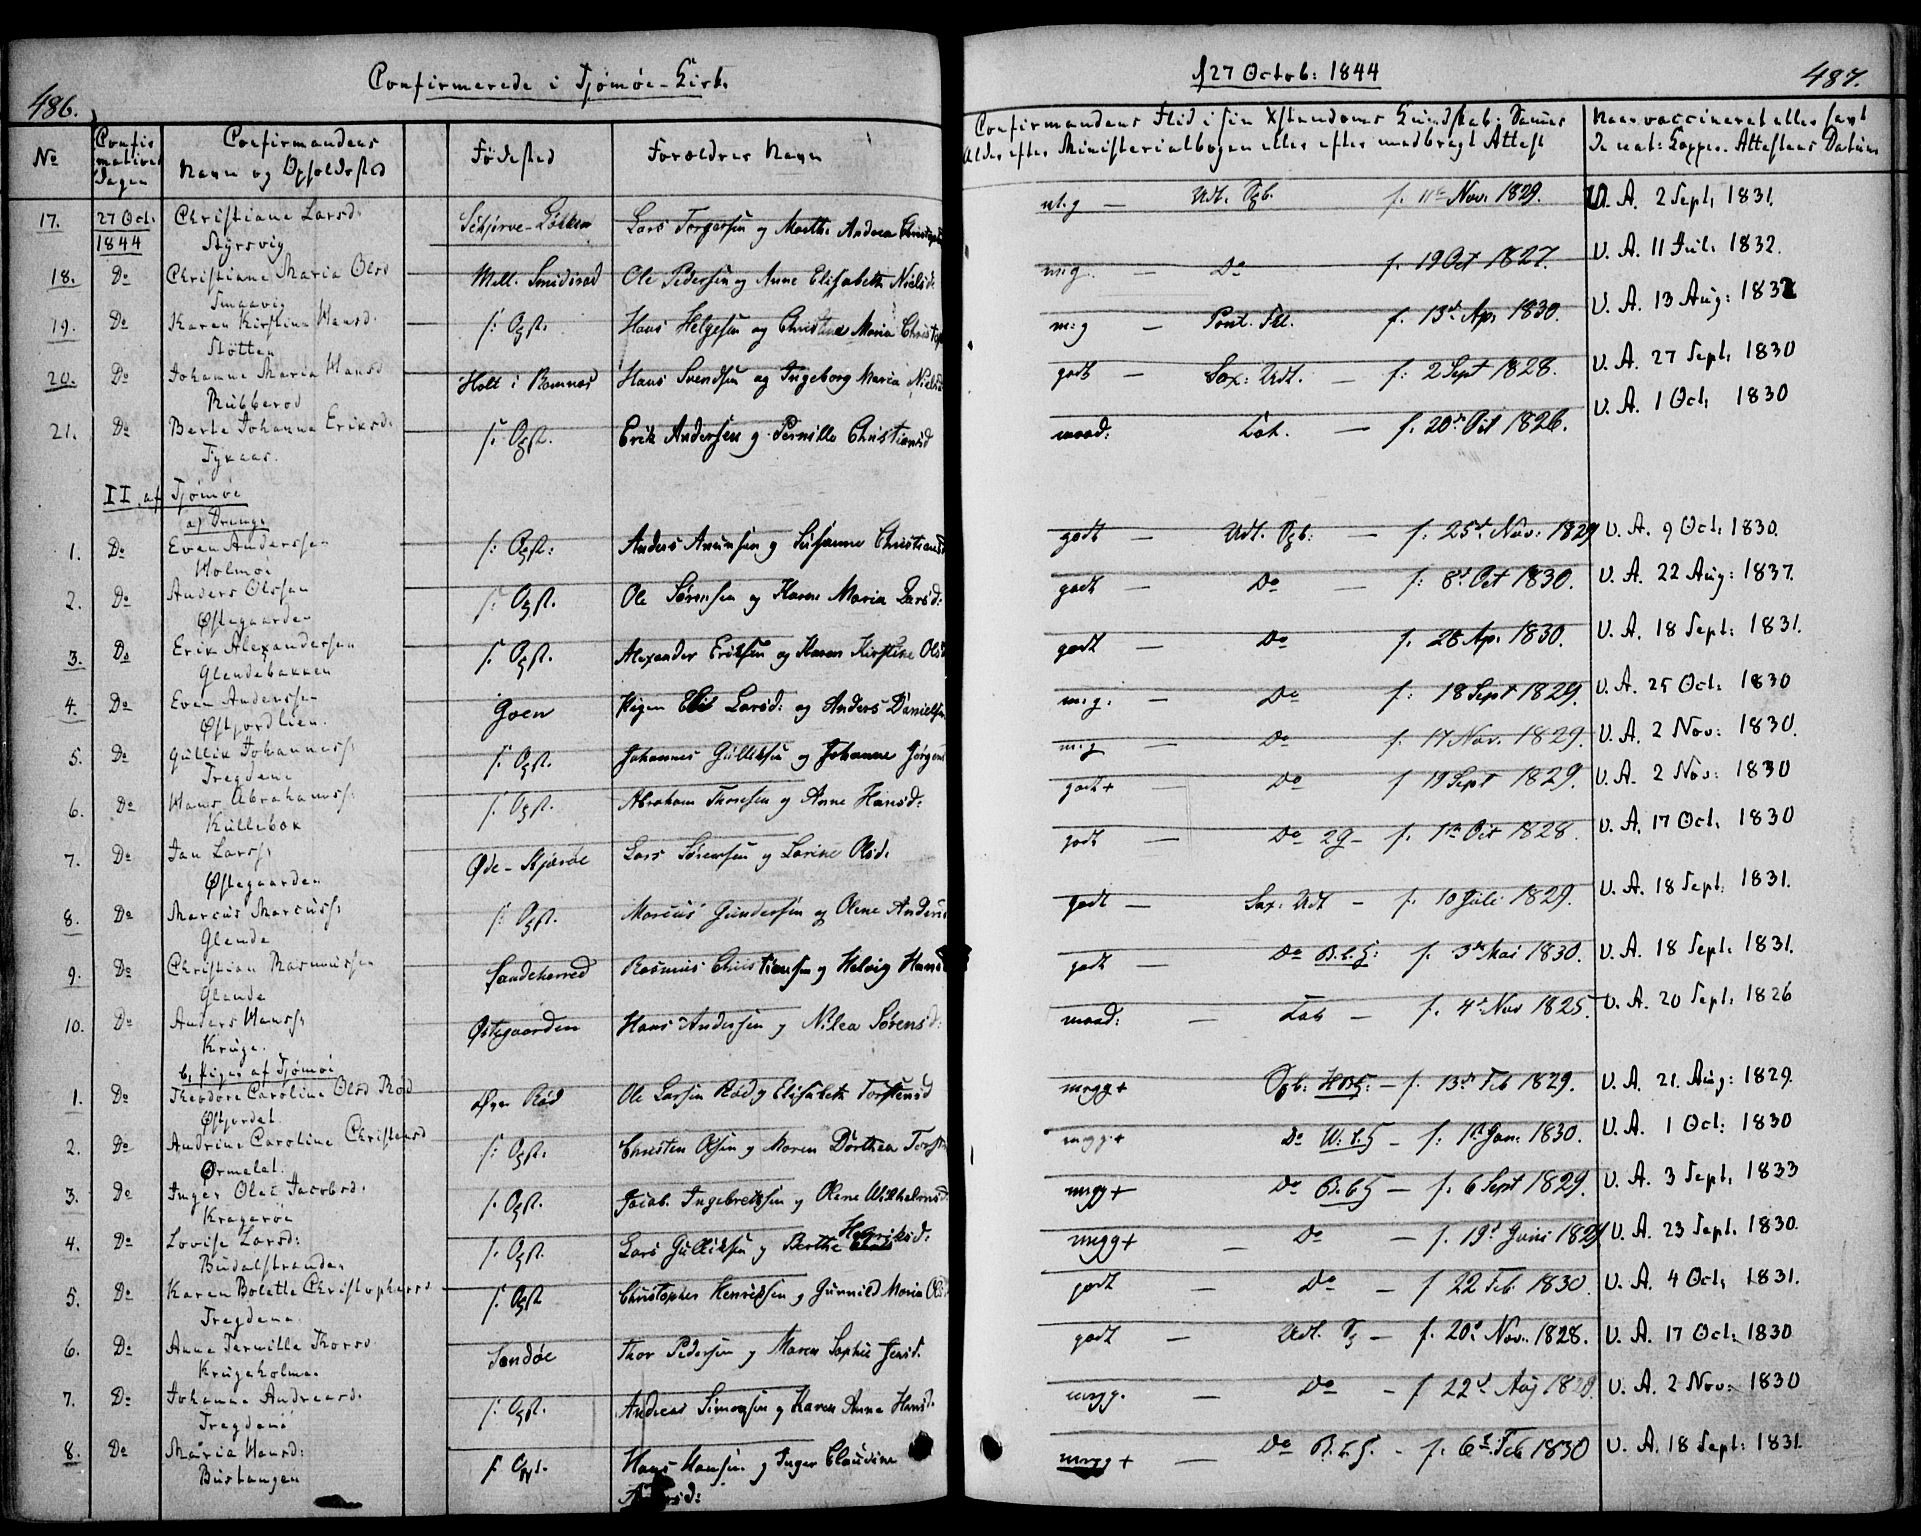 486.
Confirmerede i Tjømøe-Kirk.
No
Confirmations Dagen
Confirmandens
Navn og Opholdssted
Fødested
Forældres Navn
17. 27 Oct. 1844 Christiane Larsd. Lars Torgersen og Marthe Andrea
18. Do Christiane Maria Olsd. Mell. Ole Pedersen og Anne Elisabeth Nielsd.
19. Do Karen Kirstine Hansd. f: Opst. Hans Helgesen og Christine Maria
Støtten
20. Do Johanne Maria Hansd. Holt i Hans Svendsen og Ingeborg Maria Nielsd
Rubberød
21. Do Berte Johanne Eriksd. f: Opst. Erik Andersen og Pernille Christiansd
II. af Tjømøe
af Drenge
1. Do Even Anderssen f: Opst: Anders og Susanne Christiansd
Holmen
2. Do Anders Olssen f: Opst. Ole Sørensen og Karen Maria Larsd:
Østegaarden
3. Do Erik Alexandersen f: Opst. Alexander Eriksen og Karen Kirstine Olsd
Glendebakken
4. Do Even Anderssen Goen Pigen Larsd: og Anders Danielsen
Østjordlien.
5. Do Gullik Johanness: f: Opst. Johannes Gulliksen og Johanne Jørgens
Tregdene
6. Do Hans Abrahamss: f: Opst. Abraham Thoresen og Anne Hansd:
Kullebok
7. Do Jan Larss: Øde-Kjærøe Lars Sørensen og Larine Olsd.
Østegaarden
8. Do Marcus Marcuss: f: Opst. Marcus Gundersen og Olene Anders
Glende
9. Do Christian Rasmussen Sandeherred Rasmus Christiansen og Helvig Hansd
Glende
10. Do Anders Hanss: Østegaarden Hans Andersen og Nilea Sørensd:
Kruge.
b, Piger af Tjømøe
1. Do Theodore Caroline Olsd Rød Øvre Rød Ole Larsen Rød og Elisabeth Torstensd
Østjordet.
2. Do Andrine Caroline Christensd f: Opst. Christen Olsen og Maren Dorthea
Ørmelet.
3. Do Inger Olea Jacobsd. f. Opst. Jacob Ingebretsen og Olene Wilhelmsd.
Kragerøe
4. Do Lovise Larsd: f: Opst. Lars Gulliksen og Berthe Henriksd:
Budalstranden
5. Do Karen Bolette Christophersd f: Opst Christopher Henriksen og Gunnild Maria
Tregdene.
6. Do Anne Pernille Thorsd. Sandøe Thor Pedersen og Maren Sophie Jensd.
Krugeholme.
7. Do Johanne Andreasd. f: Opst. Andreas Simonsen og Karen Anne Hansd.
Tregdene
8. Do Maria Hansd: f: Opst. Hans Hansen og Inger Claudine
Bustangen
d 27 Octob: 1844
487.
Confirmandens Flid i sin Xstendoms Kundskab; Sammes
Alder efter Ministerialbogen eller efter medbragt Attest
Naar vaccineret eller havt
De nat: Kopper. Attestens Datum
m.g — Udt. Ogb. f. 11te Nov. 1829. V. A. 2 Sept. 1831.
m:g — Do f. 19 Oct 1827. V. A. 11 Jul: 1832.
m:g — Pont. f. 13de Apr 1830. V. A. 13 Aug: 1832
godt — Sax: Udt. — f: 2 Sept 1828. V. A. 27 Sept. 1830
maad: — f. 20de Oct 1826. V. A. 1 Oct. 1830
godt — Udt. Ogb: — f: 25de Nov: 1829 V. A. 9 Oct. 1830.
godt — Do — f: 8de Oct 1830. V. A. 22 Aug: 1837.
godt — Do f. 28 Apr. 1830. V. A. 18 Sept: 1831.
m:g: — Do f: 18 Sept 1829. V. A. 25 Oct: 1830
m:g — Do f. 17 Nov. 1829. V. A. 2 Nov: 1830.
godt+ — Do f 19 Sept 1829. V. A. 2 Nov: 1830
godt — Do 29- f. 1te Oct 1828. V. A. 17 Oct. 1830
godt — Sax: Udt — f: 10 Juli 1829. V. A. 18 Sept: 1831.
godt — Do B.b.G: f. 3de Mai 1830. V. A. 18 Sept. 1831.
maad: — f. 4de Nov 1825. V. A. 20 Sept. 1826
megg+ Ogb. — f. 13de Feb 1829. V. A. 21. Aug: 1829.
megg.+ Do — f: 1te Jan: 1830. V. A. 1 Oct: 1830
megg+ Do B.b.G — f. 6 Sept 1829. V. A. 3 Sept. 1833
megg+ — Do — f. 19de Juni 1829 V. A. 23 Sept. 1830.
godt Do — f 22 Feb. 1830. V. A. 4 Oct. 1831.
godt — Udt. — f. 20de Nov. 1828. V. A. 17 Oct: 1830
megg. — Do — f 22de Aug 1829. V. A. 2 Nov: 1830
megg+ — Do B.b.G. — f. 6te Feb 1830 V. A. 18 Sept: 1831.